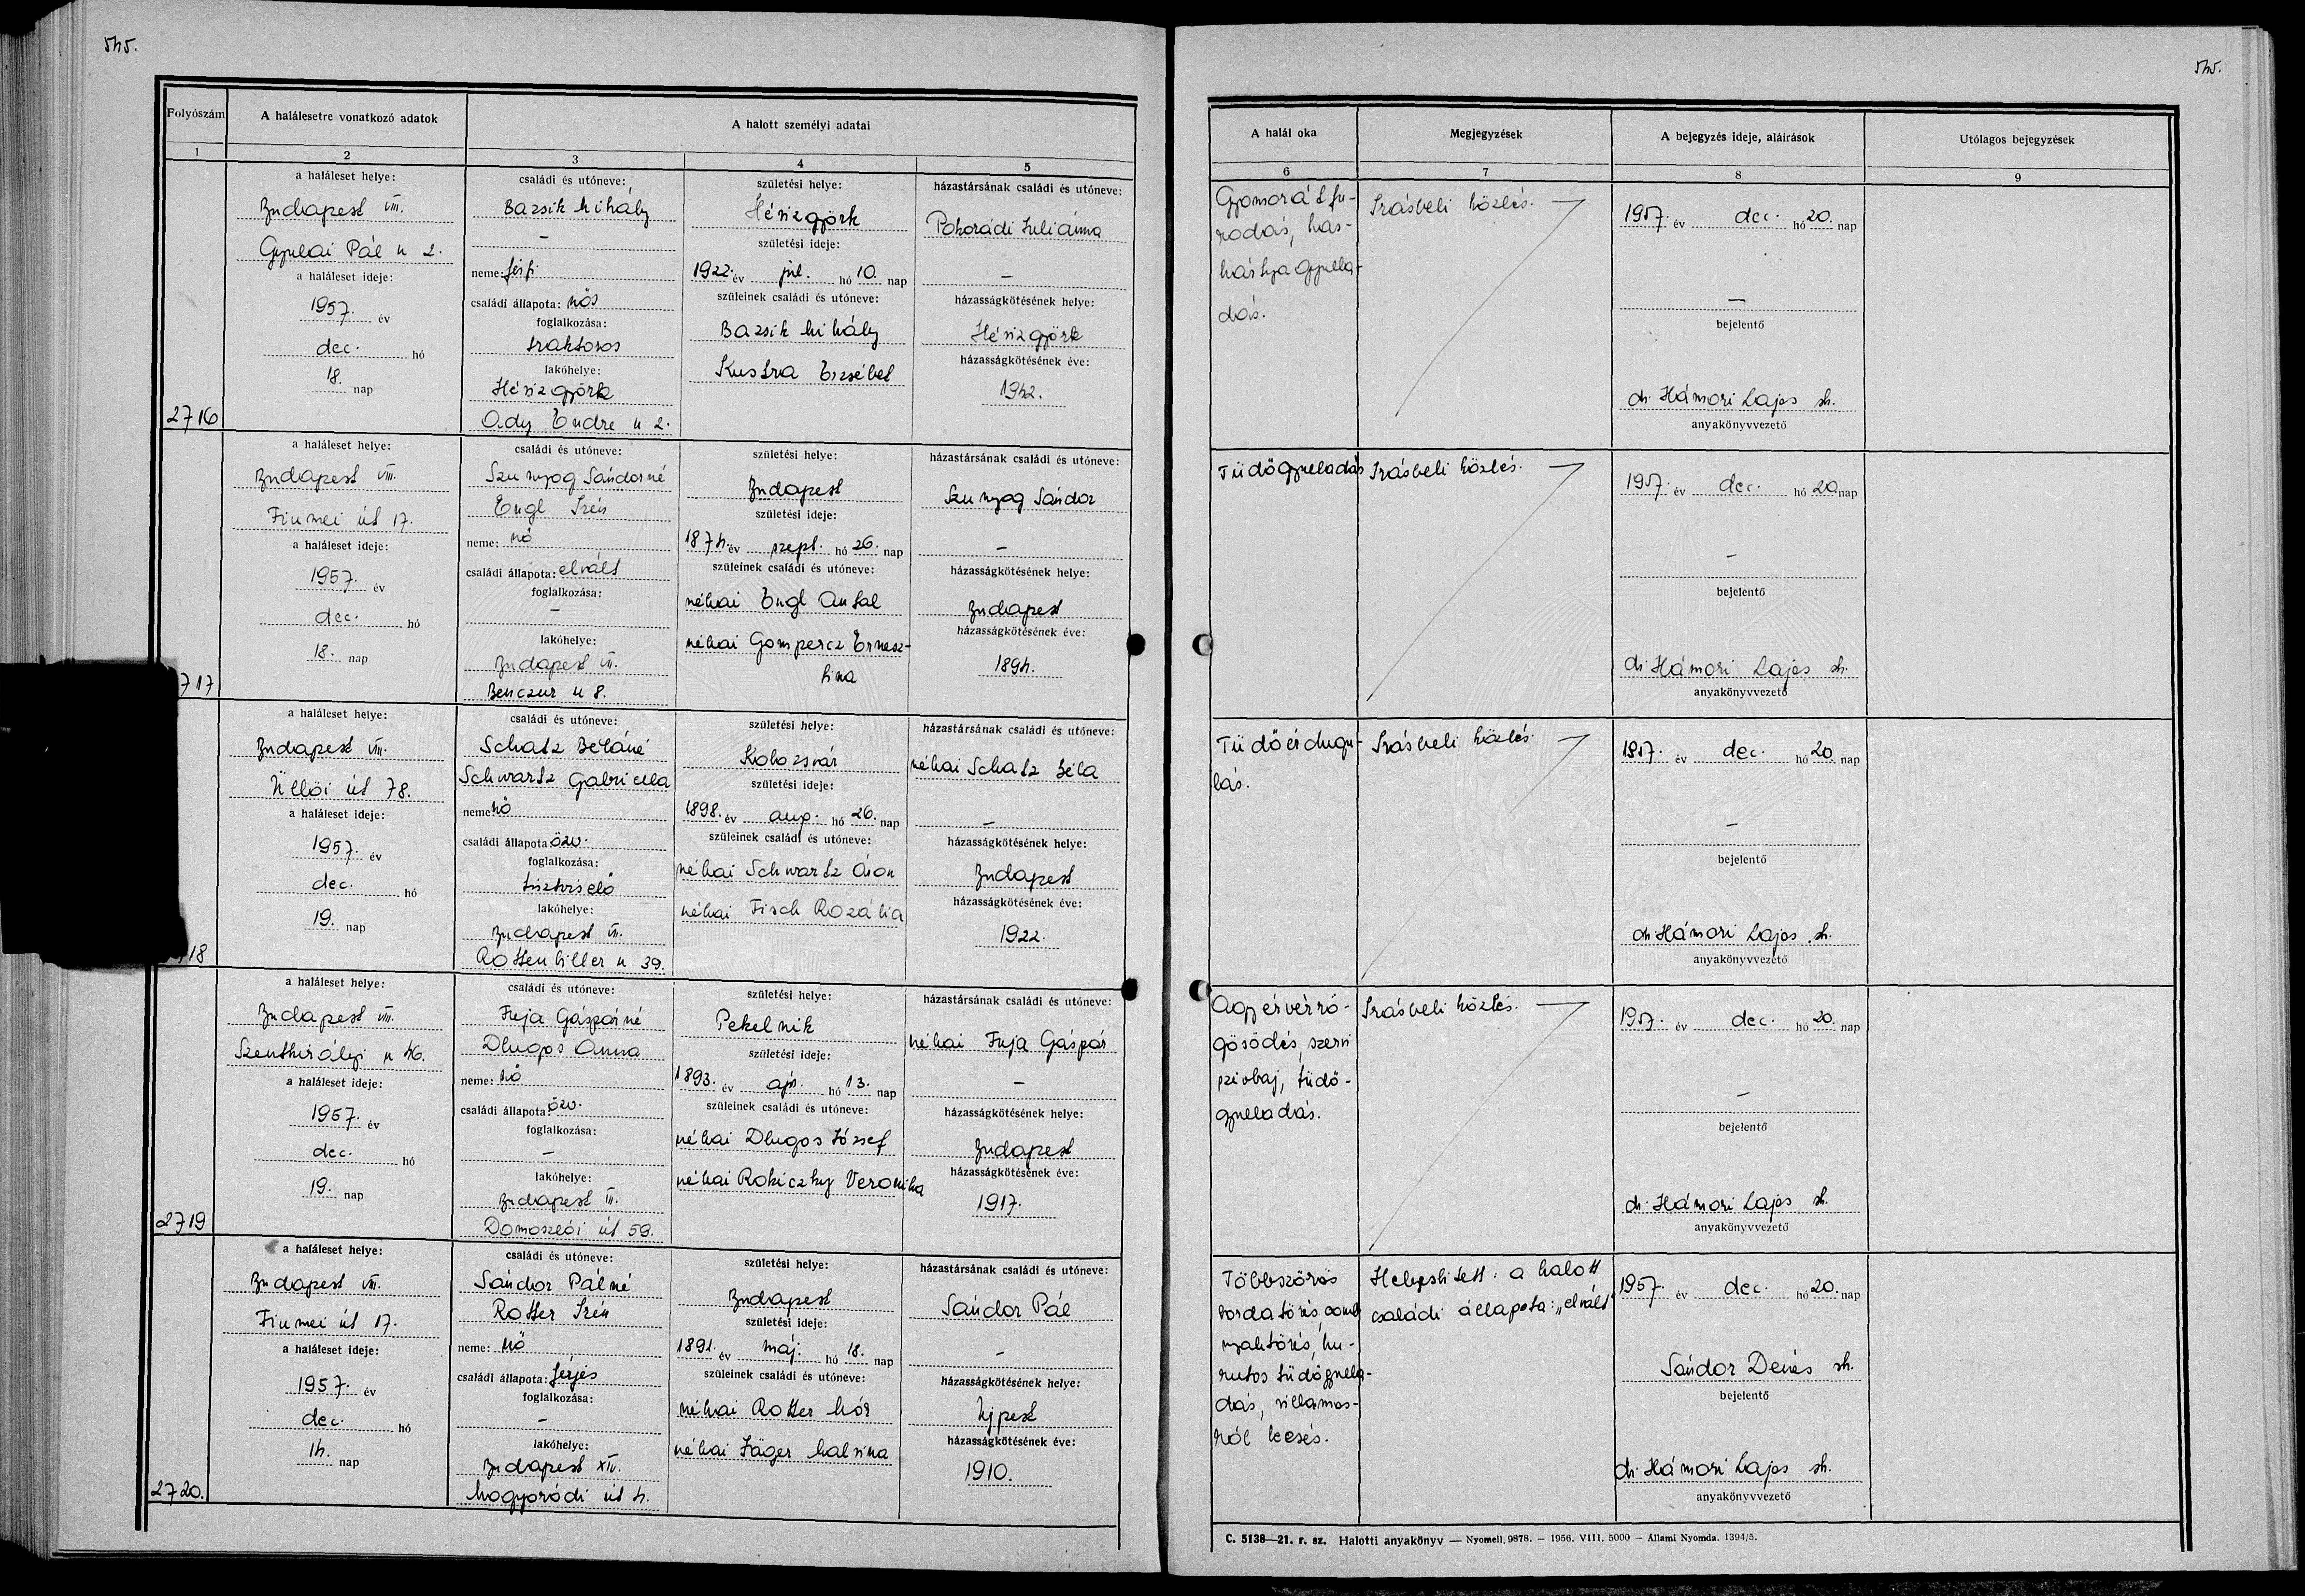 545.
545.
Folyószám
A halálesetre vonatkozó adatok
A halott személyi adatai
A halál oka
Megjegyzések
A bejegyzés ideje, aláírások
Utólagos bejegyzések
1
2
3
4
5
6
7
8
9
a haláleset helye:
Budapest VIII.
Gyulai Pál u 2.
a haláleset ideje:
1957. év
dec. hó
18. nap
2716
családi és utóneve:
Bazsik Mihály
—
neme: férfi
családi állapota: nős
foglalkozása:
traktoros
lakóhelye:
Hévizgyörk
Ady Endre u 2.
születési helye:
Hévizgyörk
születési ideje:
1922. év júl. hó 10. nap
szüleinek családi és utóneve:
Bazsik Mihály
Kustra Erzsébet
házastársának családi és utóneve:
Pohorádi Juliánna
—
házasságkötésének helye:
Hévizgyörk
házasságkötésének éve:
1942.
Gyomorátfu-
rodás, has-
hártyagyulla-
dás.
Irásbeli közlés.
1957. év dec. hó 20. nap
—
bejelentő
dr. Hámori Lajos sk.
anyakönyvvezető
a haláleset helye:
Budapest VIII.
Fiumei út 17.
a haláleset ideje:
1957. év
dec. hó
18. nap
717
családi és utóneve:
Szunyog Sándorné
Engl Irén
neme: nő
családi állapota: elvált
foglalkozása:
—
lakóhelye:
Budapest VI.
Benczur u 8.
születési helye:
Budapest
születési ideje:
1874. év szept. hó 26. nap
szüleinek családi és utóneve:
néhai Engl Antal
néhai Gompercz Ernesz-
tina
házastársának családi és utóneve:
Szunyog Sándor
—
házasságkötésének helye:
Budapest
házasságkötésének éve:
1894.
Tüdőgyuladás
Irásbeli közlés.
1957. év dec. hó 20. nap
—
bejelentő
dr. Hámori Lajos sk.
anyakönyvvezető
a haláleset helye:
Budapest VIII.
Üllői út 78.
a haláleset ideje:
1957. év
dec. hó
19. nap
18
családi és utóneve:
Schatz Béláné
Schwartz Gabriella
neme: nő
családi állapota: özv.
foglalkozása:
tisztviselő
lakóhelye:
Budapest VII.
Rottenbiller u 39.
születési helye:
Kolozsvár
születési ideje:
1898. év aug. hó 26. nap
szüleinek családi és utóneve:
néhai Schwartz Áron
néhai Fisch Rozália
házastársának családi és utóneve:
néhai Schatz Béla
—
házasságkötésének helye:
Budapest
házasságkötésének éve:
1922.
Tüdőérdugu-
lás.
Irásbeli közlés.
1957. év dec. hó 20. nap
—
bejelentő
dr. Hámori Lajos sk.
anyakönyvvezető
a haláleset helye:
Budapest VIII.
Szentkirályi u 46.
a haláleset ideje:
1957. év
dec. hó
19. nap
2719
családi és utóneve:
Fuja Gáspárné
Dlugos Anna
neme: nő
családi állapota: özv.
foglalkozása:
—
lakóhelye:
Budapest III.
Domoszlói út 59.
születési helye:
Pekelnik
születési ideje:
1893. év ápr. hó 13. nap
szüleinek családi és utóneve:
néhai Dlugos József
néhai Rokiczky Veronika
házastársának családi és utóneve:
néhai Fuja Gáspár
—
házasságkötésének helye:
Budapest
házasságkötésének éve:
1917.
Agyérvérrö-
gösödés, szervi
szivbaj, tüdő-
gyuladás.
Irásbeli közlés.
1957. év dec. hó 20. nap
—
bejelentő
dr. Hámori Lajos sk.
anyakönyvvezető
a haláleset helye:
Budapest VIII.
Fiumei út 17.
a haláleset ideje:
1957. év
dec. hó
14. nap
2720.
családi és utóneve:
Sándor Pálné
Rotter Irén
neme: nő
családi állapota: férjes
foglalkozása:
—
lakóhelye:
Budapest XIV.
Mogyoródi út 4.
születési helye:
Budapest
születési ideje:
1891. év máj. hó 18. nap
szüleinek családi és utóneve:
néhai Rotter Mór
néhai Jäger Malvina
házastársának családi és utóneve:
Sándor Pál
—
házasságkötésének helye:
Ujpest
házasságkötésének éve:
1910.
Többszörös
bordatörés, comb
nyaktörés, hu-
rutos tüdőgyulla-
dás, villamos-
ról leesés.
Helyesbitett: a halott
családi állapota: „elvált"
1957. év dec. hó 20. nap
Sándor Dénes sk.
bejelentő
dr. Hámori Lajos sk.
anyakönyvvezető
C. 5138—21. r. sz. Halotti anyakönyv — Nyomell. 9878. — 1956. VIII. 5000 — Állami Nyomda. 1394/5.